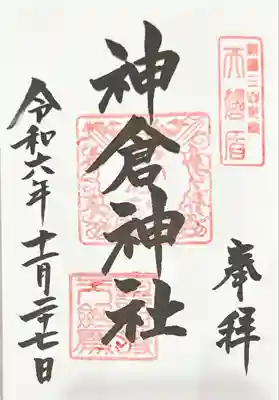 天磐盾
奉拝
神倉神社
令和六年十一月二十七日